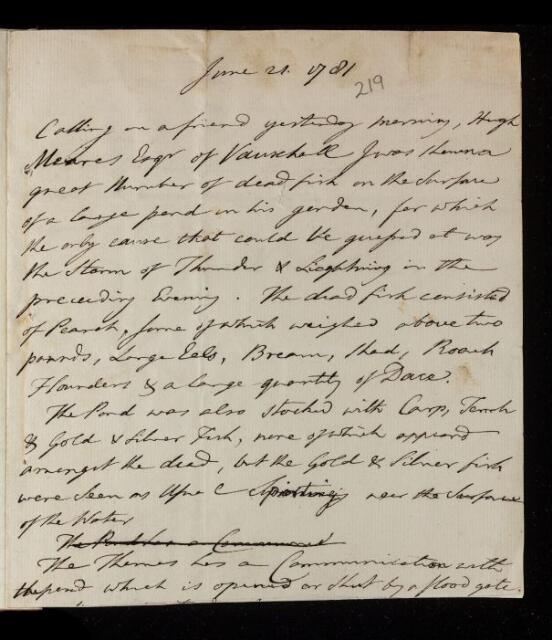 June 21. 1781
219
Calling on a friend yesterday morning, Hugh
Meares Esqr of Vauxhall I was shewn a
great Number of dead fish on the Surface
of a large pond in his garden, for which
the only cause that could be guessed at was
the Storm of Thunder & Lightning in the
preceeding Evening. The dead fish consisted
of Pearch, some of which weighed above two
pounds, Large Eels, Bream, Shad, Roach
Flounders & a large quantity of Dace.
The Pond was also stocked with Carp, Tench
& Gold & Silver Fish, none of which appeard
amongst the dead, but the Gold & Silver fish
were seen as Usual Sporting near the Surface
of the Water
The Pond has a Communi
The Thames has a Communication with
the pond which is opened or shut by a flood gate.